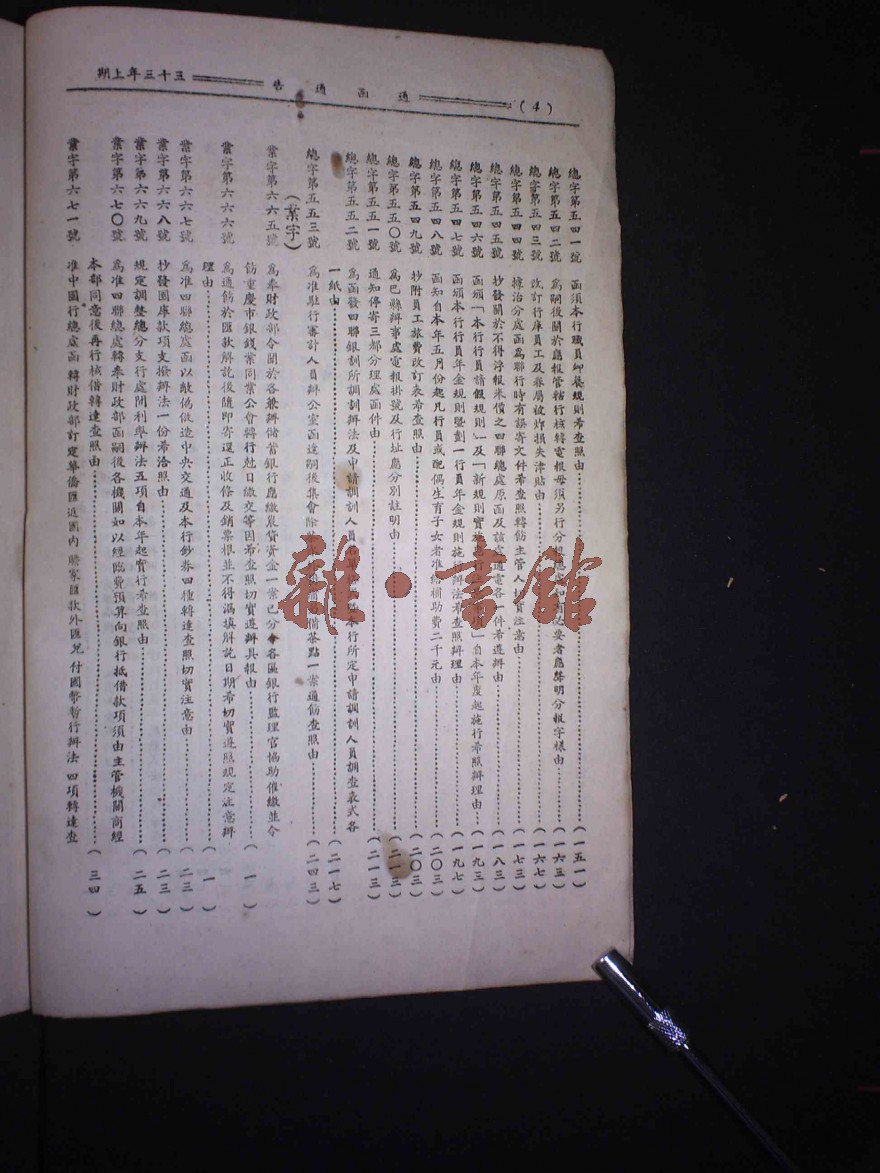 (4) 通函通告 三十三年上期
總字第五四一號 函須本行職員 規則希查照由 (一五一)
總字第五四二號 為嗣後關於應報管轄行核轉電報毋須另行分報總處如 有必要者應禁明分報字樣由 (一六三)
總字第五四三號 改訂行庫員工及眷屬被炸損失津貼由 (一六七)
總字第五四四號 據治分處函為聯行時有誤寄文件希查照轉飭主管人切實注意由 (一七三)
總字第五四五號 抄發關於不得浮報米價之四聯總處原函及該處通電各一件希遵辦由 (一八三)
總字第五四六號 函頒「本行行員請假規則」及「新規則實施 行 項」自本年度起施行希照辦理由 (一九三)
總字第五四七號 函頒本行行員年金規則暨劃一行員年金規則施行辦法希查照辦理由 (一九七)
總字第五四八號 函知自本年五月份起凡行員或配偶生育子女者准給補助費二千元由 (二〇三)
總字第五四九號 抄附員工旅費改訂表希查照由 (二〇三)
總字第五五〇號 為巴縣辦事處電報掛號及行址應分別註明由 (二一三)
總字第五五一號 通知停寄三都分理處函件由 (二一三)
總字第五五二號 為函發四聯銀訓所調訓辦法及申請調訓人員 本行所定申請調訓人員調查表式各
一紙由 (二一七)
總字第五五三號 為准駐行審計人員辦公室函達嗣後集會除 備茶點一案通飭查照由 (二四三)
(業字)
業字第六六五號 為奉財政部令關於各兼辦儲蓄銀行應繳農貸資金一案已分令各區銀行監理官協助催繳並令
飭重慶市銀錢業同業公會轉行尅日繳交等因希查照切實遵辦具報由 (一)
業字第六六六號 為通飭於匯款解訖後隨即寄還正收條及銷票根並不得漏填解訖日期希切實遵照規定注意辦
理由 (一)
業字第六六七號 為准四聯總處函以敵偽倣造中央交通及本行鈔券四種轉達查照切實注意由 (二三)
業字第六六八號 抄發國庫款項支撥辦法一份希洽照由 (二三)
業字第六六九號 規定調整總分支行處開利率辦法五項自本年起實行希查照由 (二五)
業字第六七〇號 為准四聯總處轉奉財政部函嗣後各機關如以經臨費預算向銀行抵借款項須由主管機關商經
本部同意後再行核借轉達查照由 (三四)
業字第六七一號 准中國行總處函轉財政部訂定華僑匯返國內贍家匯款外匯兌付國幣暫行辦法四項轉達查
雜·書館